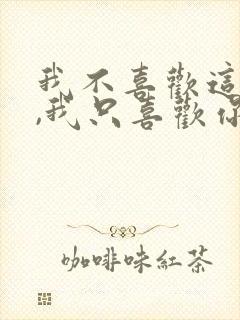 我不喜歡這
,我只喜歡你
咖啡味紅茶